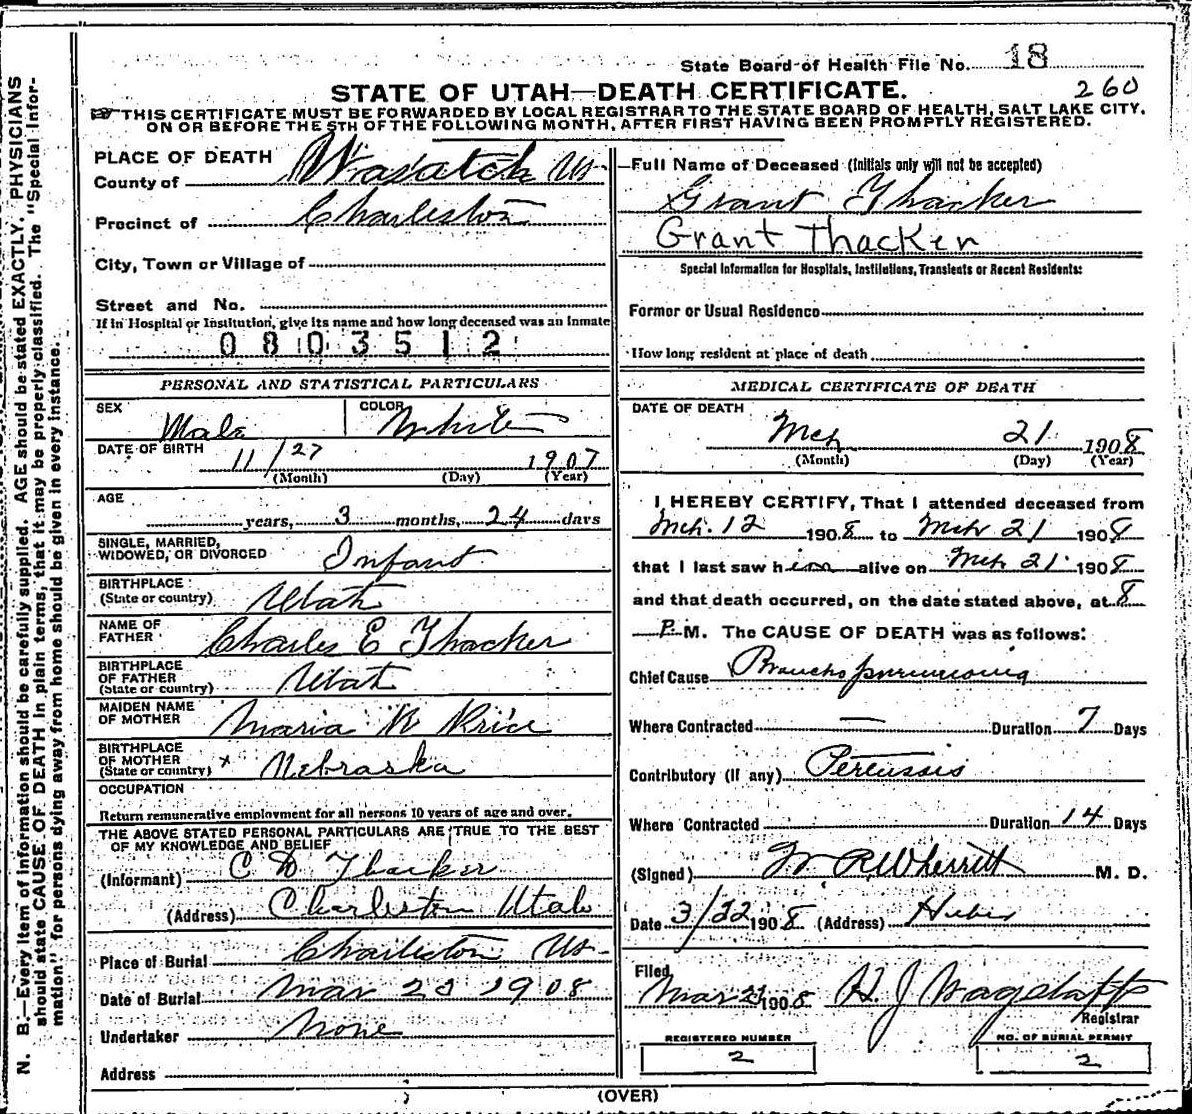 State Board of Health File No. 18
260
STATE OF UTAH—DEATH CERTIFICATE.
THIS CERTIFICATE MUST BE FORWARDED BY LOCAL REGISTRAR TO THE STATE BOARD OF HEALTH, SALT LAKE CITY,
ON OR BEFORE THE 5TH OF THE FOLLOWING MONTH, AFTER FIRST HAVING BEEN PROMPTLY REGISTERED.
PLACE OF DEATH
County of Wasatch
Precinct of Charleston
City, Town or Village of
Street and No.
If in Hospital or Institution, give its name and how long deceased was an inmate
0803512
Full Name of Deceased (Initials only will not be accepted)
Grant Thacker
Grant Thacker
Special Information for Hospitals, Institutions, Transients or Recent Residents:
Former or Usual Residence
How long resident at place of death
PERSONAL AND STATISTICAL PARTICULARS
SEX Male COLOR White
DATE OF BIRTH 11/27 1907
(Month) (Day) (Year)
AGE
years, 3 months, 24 days
SINGLE, MARRIED,
WIDOWED, OR DIVORCED Infant
BIRTHPLACE
(State or country) Utah
NAME OF
FATHER Charles E Thacker
BIRTHPLACE
OF FATHER
(State or country) Utah
MAIDEN NAME
OF MOTHER Maria Price
BIRTHPLACE
OF MOTHER
(State or country) x Nebraska
OCCUPATION
Return remunerative employment for all persons 10 years of age and over.
THE ABOVE STATED PERSONAL PARTICULARS ARE TRUE TO THE BEST
OF MY KNOWLEDGE AND BELIEF
(Informant) C D Thacker
(Address) Charleston Utah
Place of Burial Charleston
Date of Burial Mar 23 1908
Undertaker None
Address
MEDICAL CERTIFICATE OF DEATH
DATE OF DEATH
Mch 21 1908
(Month) (Day) (Year)
I HEREBY CERTIFY, That I attended deceased from
Mch. 12 1908 to Mch 21 1908
that I last saw him alive on Mch 21 1908
and that death occurred, on the date stated above, at 8
P. M. The CAUSE OF DEATH was as follows:
Chief Cause Broncho pneumonia
Where Contracted — Duration 7 Days
Contributory (If any) Pertussis
Where Contracted Duration 14 Days
(Signed) W R Wherritt M. D.
Date 3/22 1908 (Address) Heber
Filed
Mar 1908 H J Wagstaff
Registrar
REGISTERED NUMBER
2
NO. OF BURIAL PERMIT
2
(OVER)
N. B.—Every item of information should be carefully supplied. AGE should be stated EXACTLY. PHYSICIANS
should state CAUSE OF DEATH in plain terms, that it may be properly classified. The "Special Infor-
mation" for persons dying away from home should be given in every instance.